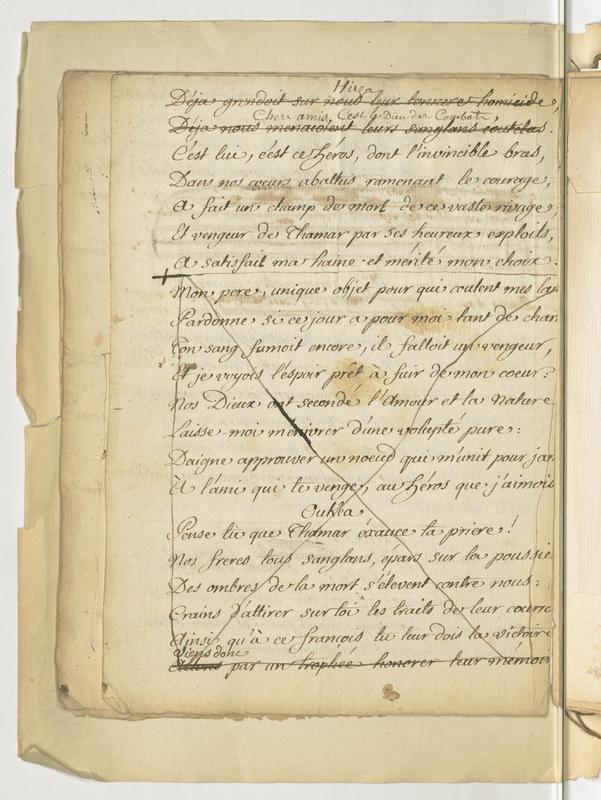 Hirza
Déja grondoit sur nous leur tonnere homicide,
Chers amis, c'est le Dieu des Combats,
Déja nous menacoient leurs sanglans coutelas.
C'est lui, c'est ce héros, dont l'invincible bras,
Dans nos coeurs abattus ramenant le courage,
A fait un champ de mort de ce vaste rivage,
Et vengeur de Thamar par ses heureux exploits,
A satisfait ma haine et mérité mon choix.
Mon pere, unique objet pour qui coulent mes lar
Pardonne si ce jour a pour moi tant de char
Ton sang fumoit encore, il falloit un vengeur,
Et je voyois l'espoir prêt à fuir de mon coeur:
Nos Dieux ont secondé l'Amour et la Nature
Laisse-moi m'enivrer d'une volupté pure:
Daigne approuver un noeud qui m'unit pour jam
À l'ami qui te venge, au héros que j'aimois
Oukéa
Pense tu que Thamar éxauce ta priere!
Nos freres tous sanglans, épars sur la poussie
Des ombres de la mort s'élevent contre nous:
Crains d'attirer sur toi les traits de leur courro
Ainsi qu'à ce françois tu leur dois la victoire
Viens donc
Allons par un trophée honorer leur mémoir